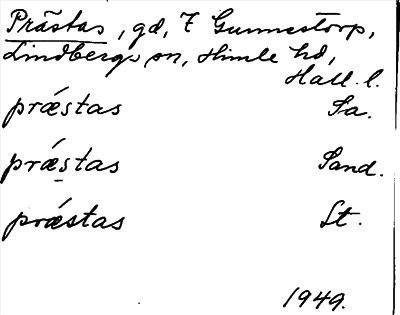 Prästas, gd, 7 Gunnestorp,
Lindbergs sn, Himle hd,
Hall. l.
prǽstas Sa.
prǽstas Sand.
prǽstas St.
1949.